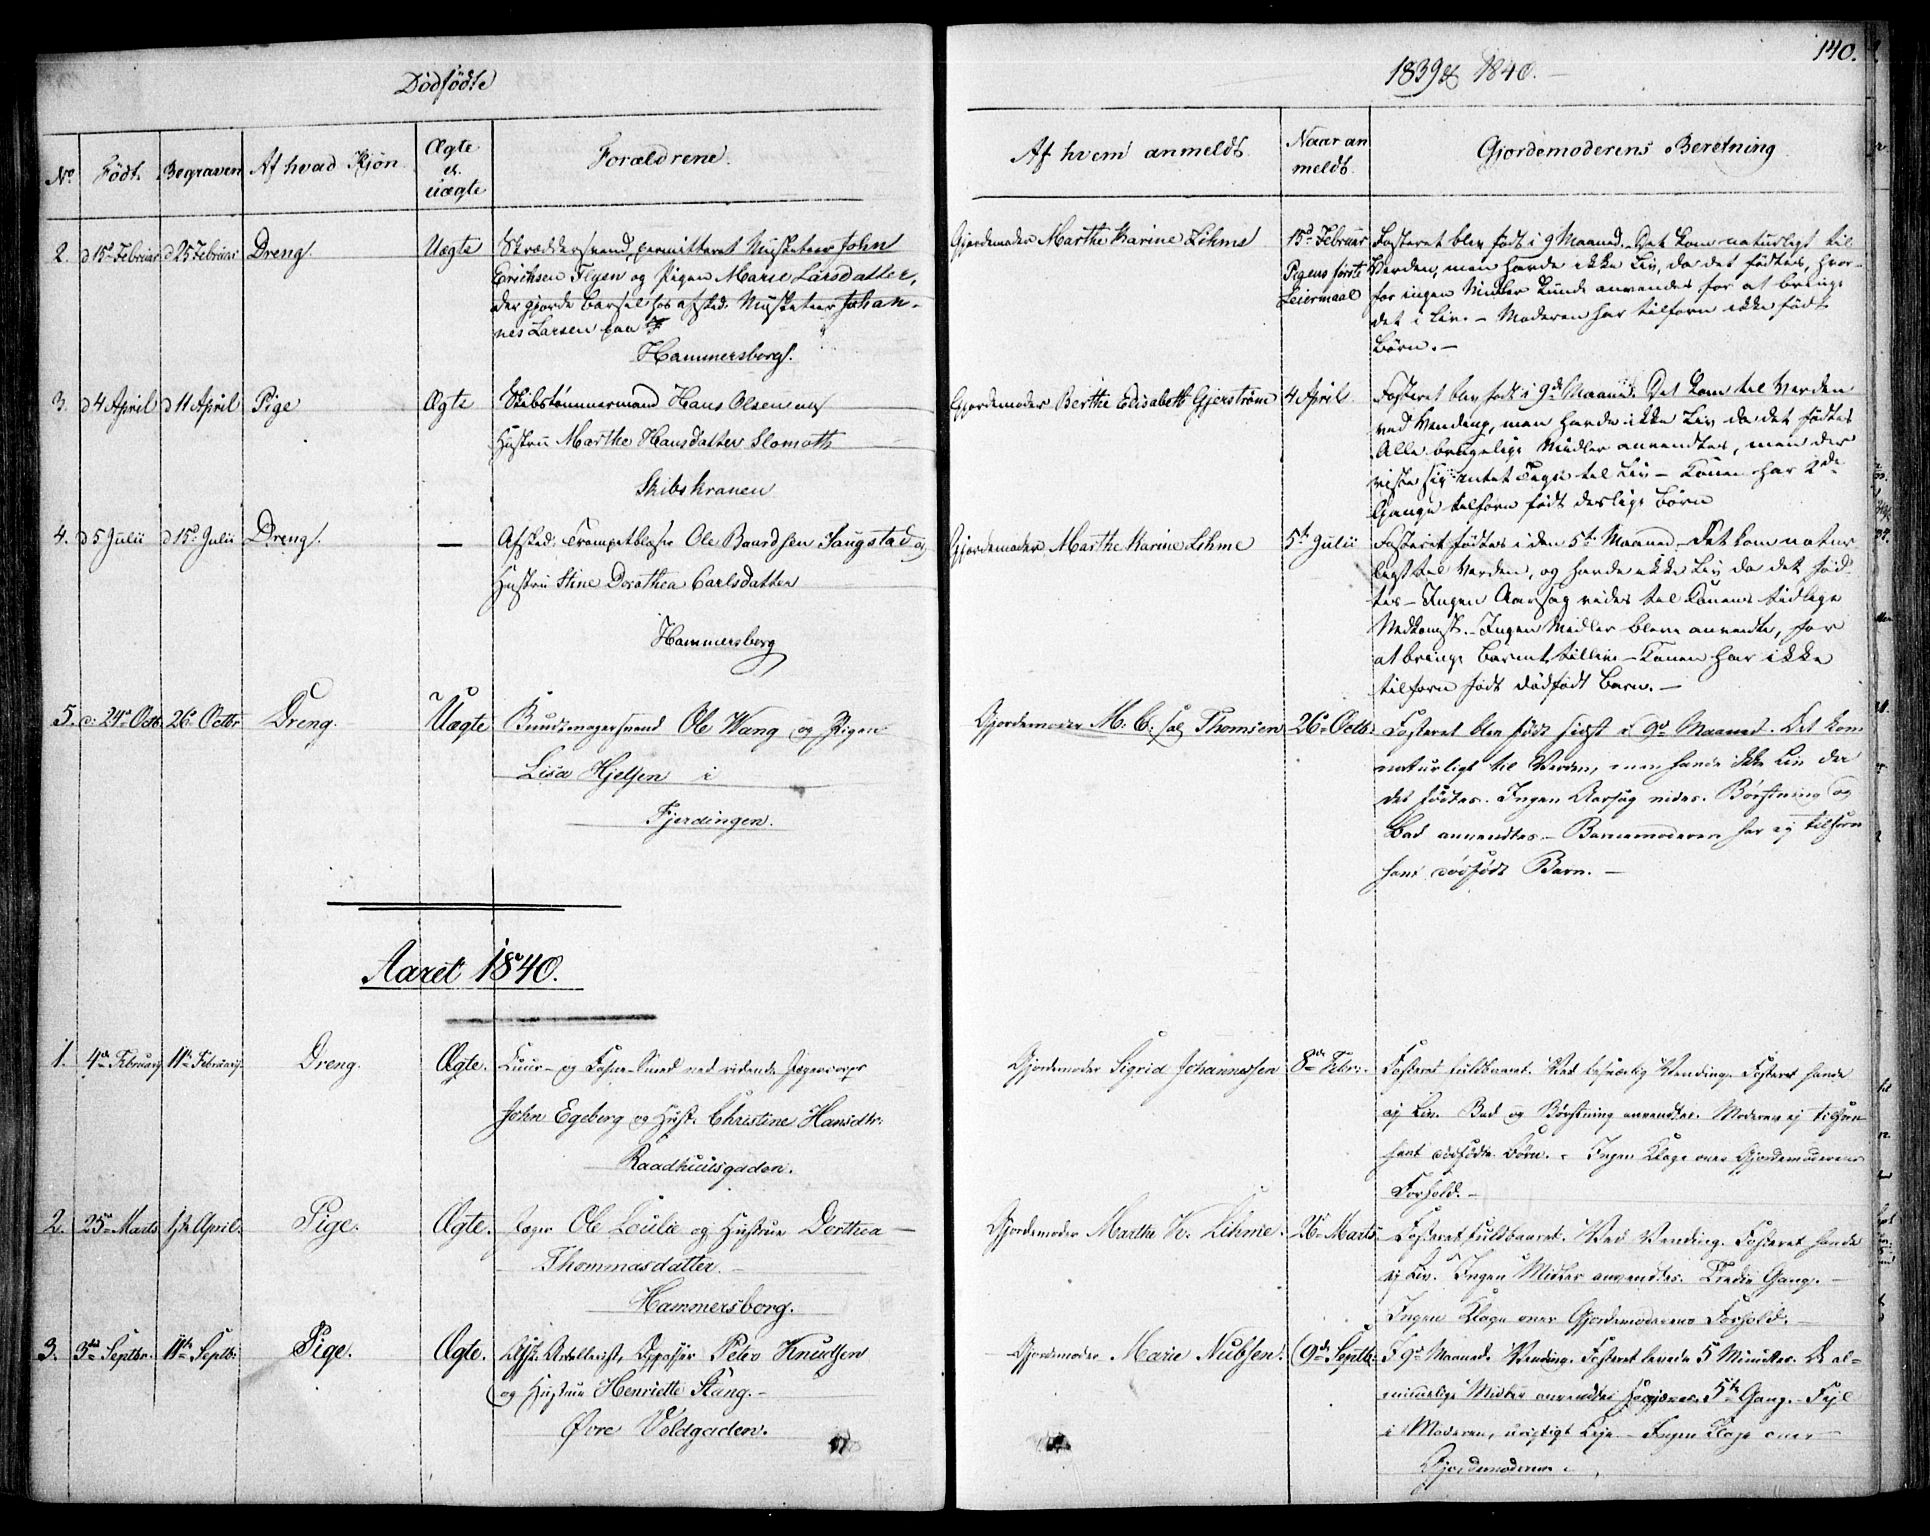 140.
Dödfödte
1839 & 1840.
No. Födt. Begraven Af hvad Kjön. Ægte el. uægte Forældrene.
Af hvem anmeldt. Naar anmeldt. Gjordemoderens Beretning
2. d 15de Februar d 25 Februar Dreng. Uægte Skræddersvend, permitteret Musketeer John
Erichsen Fryen og Pigen Marie Larsdatter,
der gjorde Barsel hos afsked. Musketeer Johan-
nes Larsen paa
Hammersborg.
Gjordemoder Marthe Karine Lihme 15d Februar
Pigens første
Leiermaal
Fosteret blev født i 9 Maaned. Det kom naturligt til
Verden, men havde ikke Liv, da det fødtes, hvor-
for ingen Midler kunde anvendes for at bringe
det i Liv. – Moderen har tilforn ikke født
Børn. –
3. d 4 April d 11 April Pige Ægte Skibstømmermand Hans Olsen og
Hustru Marthe Hansdatter Slomoth
Skibskranen
Gjordemoder Berthe Elisabeth Gjerstrøm 4 April
Fosteret blev født i 9de Maaned. Det kom til Verden
ved Vending, men havde ikke Liv da det fødtes
Alle brugelige Midler anvendtes, men der
viste sig intet Tegn til Liv – Konen har 2de
Gange tilforn født deslige Børn
4. d 5 Julii d 15d Julii Dreng. — Afsked. Trompetblæser Ole Baardsen Saugstad og
Hustru Stine Dorothea Carlsdatter
Hammersborg
Gjordemoder Marthe Karine Lihme 5te Julii
Fosteret fødtes i den 5te Maaned – Det kom natur
ligt til Verden, og havde ikke Liv da det fød-
tes – Ingen Aarsag vides til Konens tidlige
Nedkomst. – Ingen Midler bleve anvendte, for
at bringe Barnet til Live – Konen har ikke
tilforn født dødfødt Barn. –
5. d. 24de Octb. 26de Octbr Dreng. Uægte Buntmagersvend Ole Wang og Pigen
Lisa Hjelsen i
Fjerdingen.
Gjordemoder M. C. sal Thomsen 26de Octb.
Fosteret blev født sidst i 9de Maaned. Det kom
naturligt til Verden, men havde ikke Liv da
det fødtes. Ingen Aarsag vides. Børstning og
Bad anvendtes. – Barnemoderen har ej tilforn
havt dødfødt Barn. –
Aaret 1840.
1. 4de Februarij. 11te Februarij. Dreng. Ægte. Cuur- og Smed ved ridende Jægercorps
John Egeberg og Hust. Christine Hansdtr.
Raadhuusgaden.
Gjordemoder Sigrid Johannesen 8de Febr.
Fosteret fuldbaaret. Ved besværlig Vending. Fosteret havde
ej Liv. Bad og Børstning anvendtes. Moderen ej tilforn
havt dødfødte Børn. – Ingen Klage over Gjordemoderens
Forhold. –
2. 25de Marts 1ste April. Pige. Ægte. Ole Loulie og Hustrue Dorthea
Thommasdatter.
Hammersborg.
Gjordemoder Marthe K. Lihme. 26de Marts.
Fosteret fuldbaaret. Ved Vending. Fosteret havde
ej Liv. Ingen Midler anvendtes. Tredie Gang. –
Ingen Klage over Gjordemoderens Forhold. –
3. 3die Septbr. 11te Septbr. Pige. Ægte. Afsk. Artillerist, Peter Knudsen
og Hustrue Henriette Stang. –
Øvre Voldgaden.
Gjordemoder Marie Nubsen. 9de Septb.
I 9de Maaned. Vending. Fosteret levede 5 Minutter. De al-
mindelige Midler anvendtes forgjæves. 5te Gang. – Fejl
i Moderen, urigtigt Leje – Ingen Klage over
Gjordemoderen.